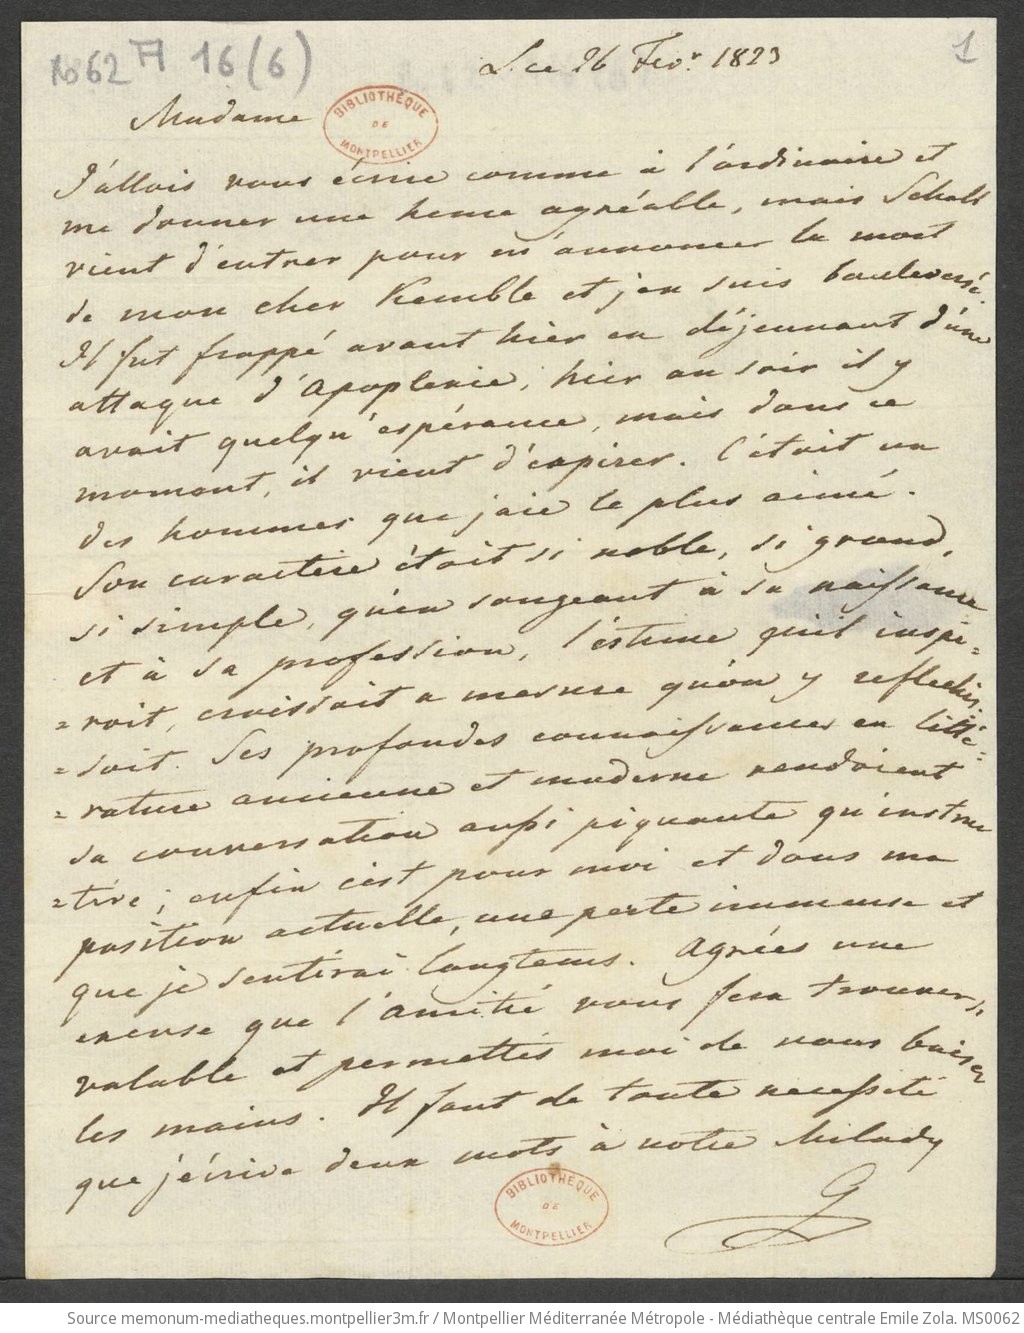 No 62 A 16 (6)
1
L. ce 26 Fevr. 1823
Madame
BIBLIOTHÈQUE
DE
MONTPELLIER
J'allois vous écrire comme à l'ordinaire et
me donner une heure agréable, mais Scholl
vient d'entrer pour m'annoncer la mort
de mon cher Kemble et j'en suis bouleversé.
Il fut frappé avant hier en déjeunant d'une
attaque d'Apoplexie; hier au soir il y
avait quelqu'espérance, mais dans ce
moment, il vient d'expirer. C'étoit un
des hommes que j'aie le plus aimé.
Son caractère étoit si noble, si grand,
si simple, qu'en songeant à sa naissance
et à sa profession, l'estime qu'il inspi=
=roit, croissoit a mesure qu'on y reflechis=
=soit. Ses profondes connaissances en litté=
=rature ancienne et moderne rendoient
sa conversation aussi piquante qu'instruc
=tive; enfin c'est pour moi et dans ma
position actuelle, une perte immense et
que je sentirai longtems. Agrées une
excuse que l'amitié vous fera trouver
valable et permettés moi de vous baiser
les mains. Il faut de toute necessité
que j'écrive deux mots à notre Milady
G
BIBLIOTHÈQUE
DE
MONTPELLIER
Source memonum-mediatheques.montpellier3m.fr / Montpellier Méditerranée Métropole - Médiathèque centrale Emile Zola. MS0062